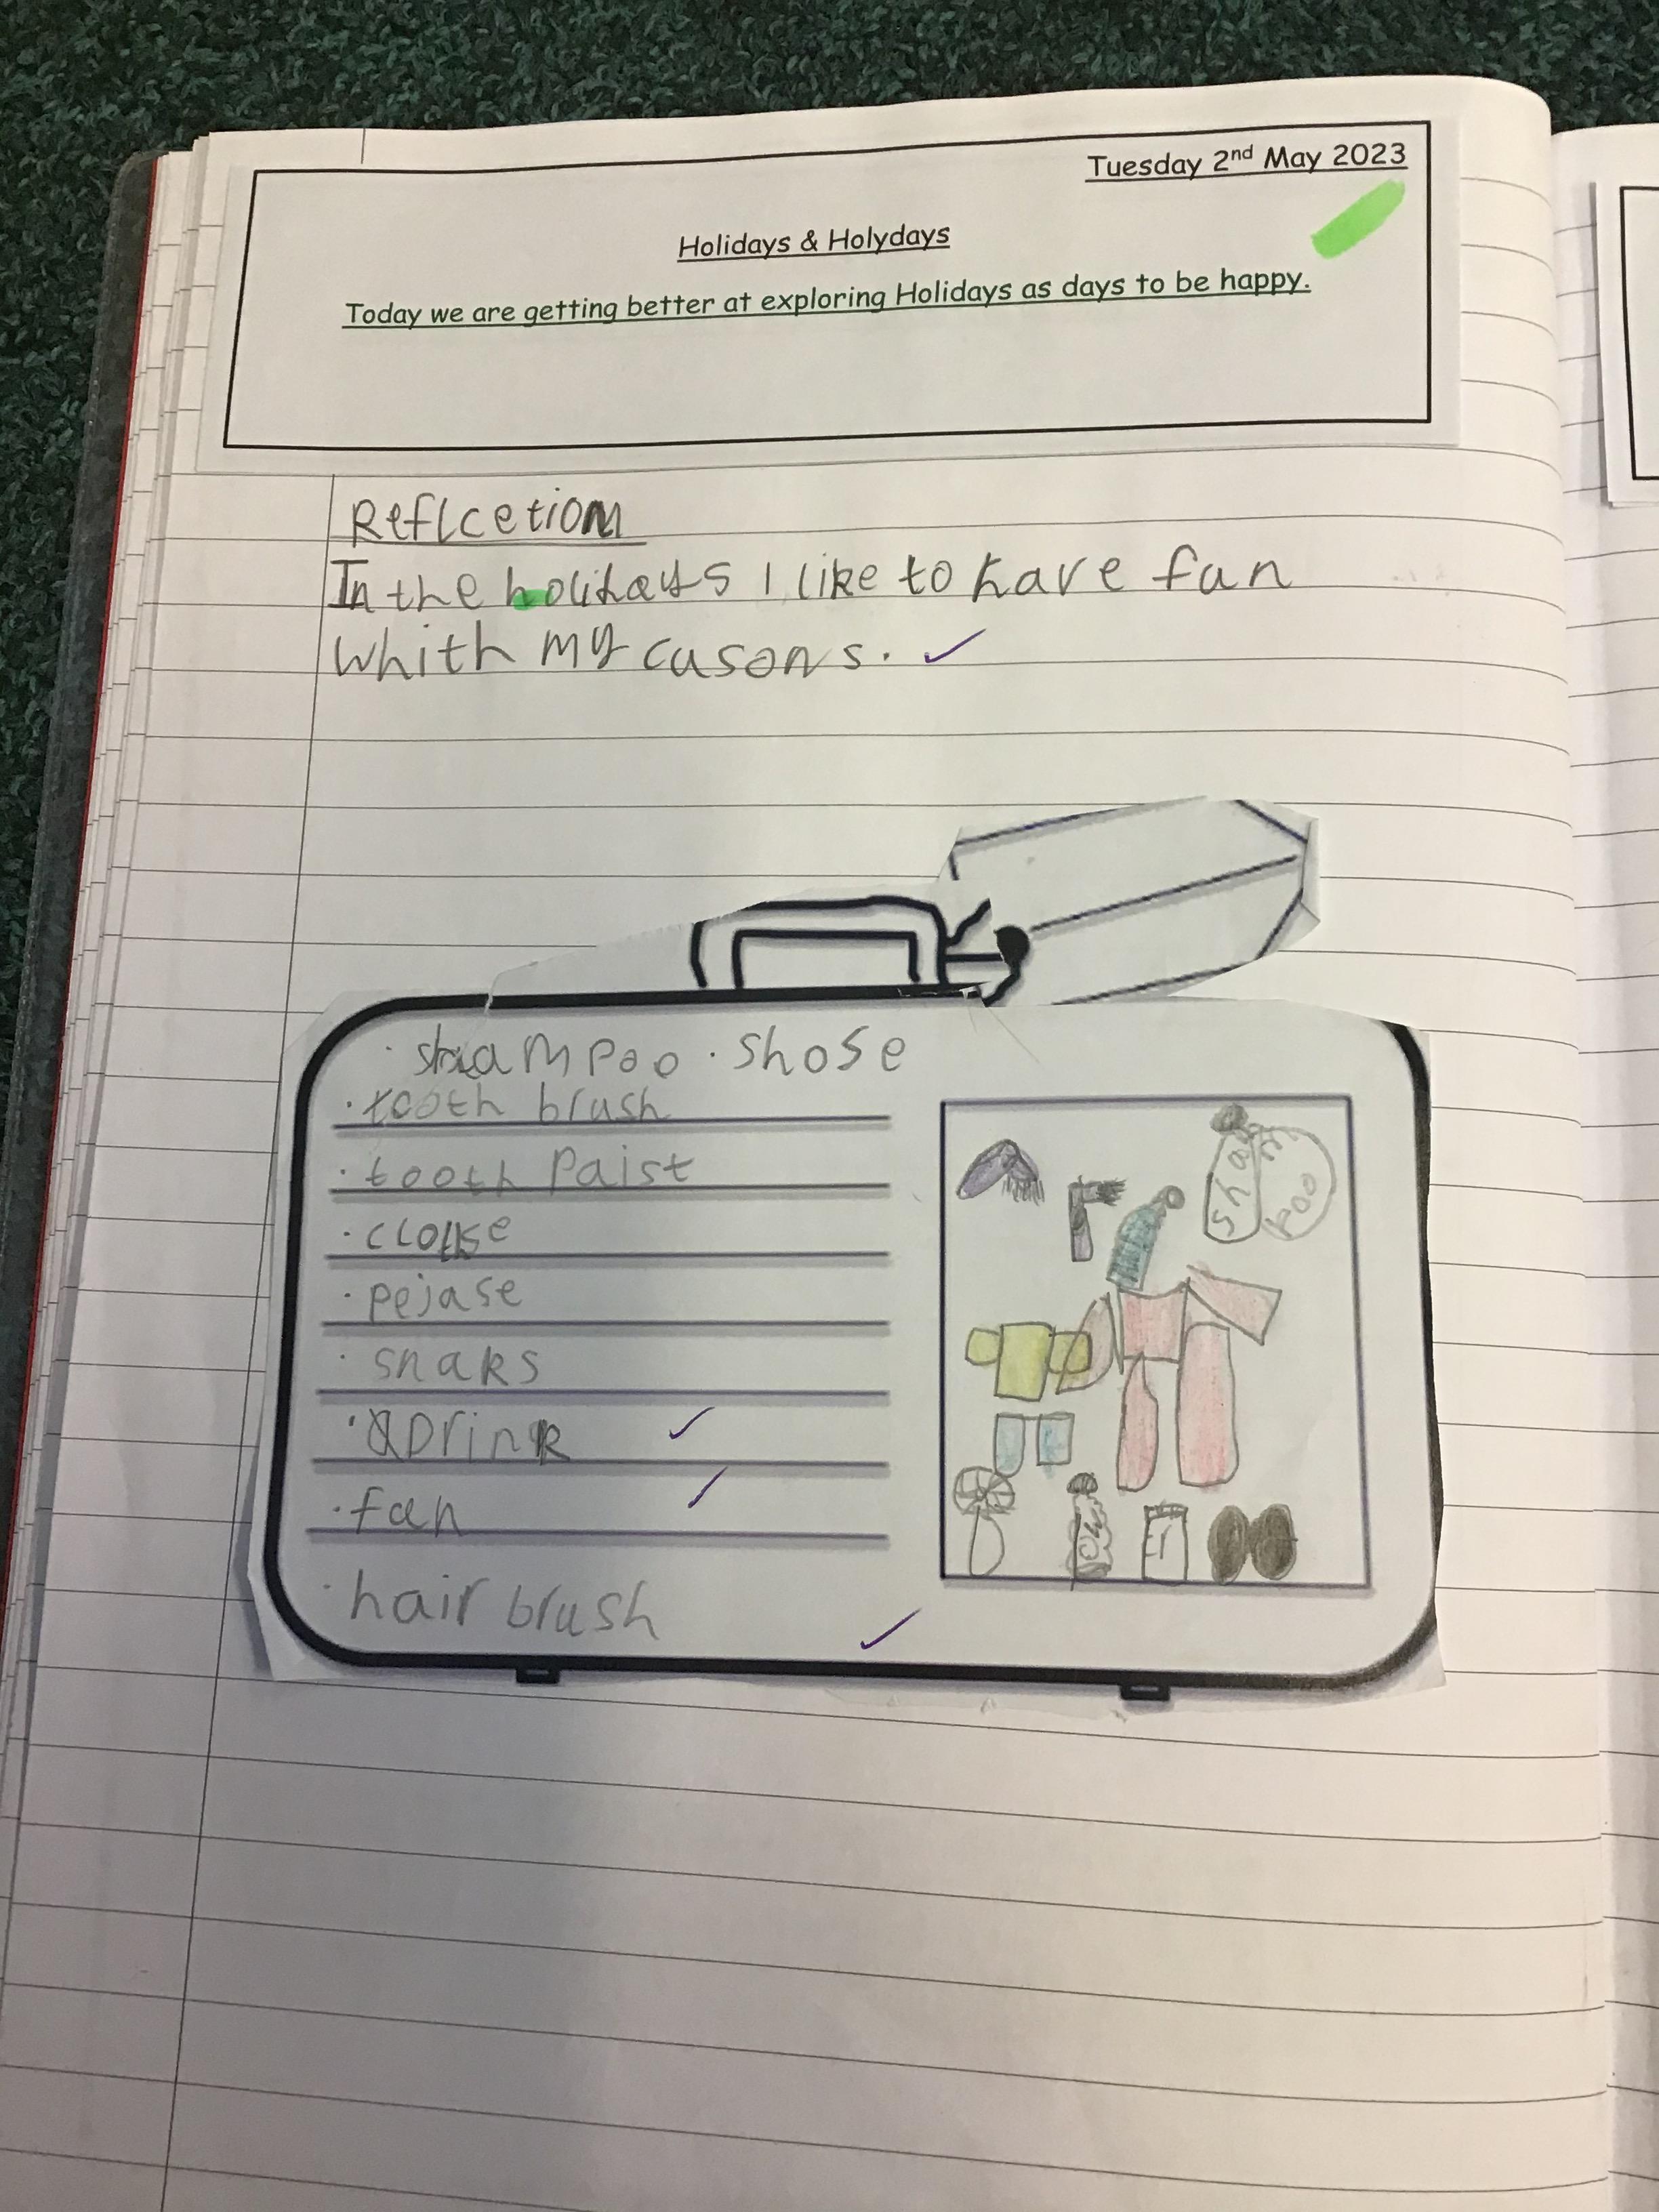 Tuesday 2nd May 2023
Holidays & Holydays
Today we are getting better at exploring Holidays as days to be happy.
Reflcetion
In the holidays I like to have fan
whith my casons.
· shampoo · shose
· tooth brush
· tooth paist
· clouse
· pejase
· snaks
· Drink
· fan
· hair brush
sham
poo